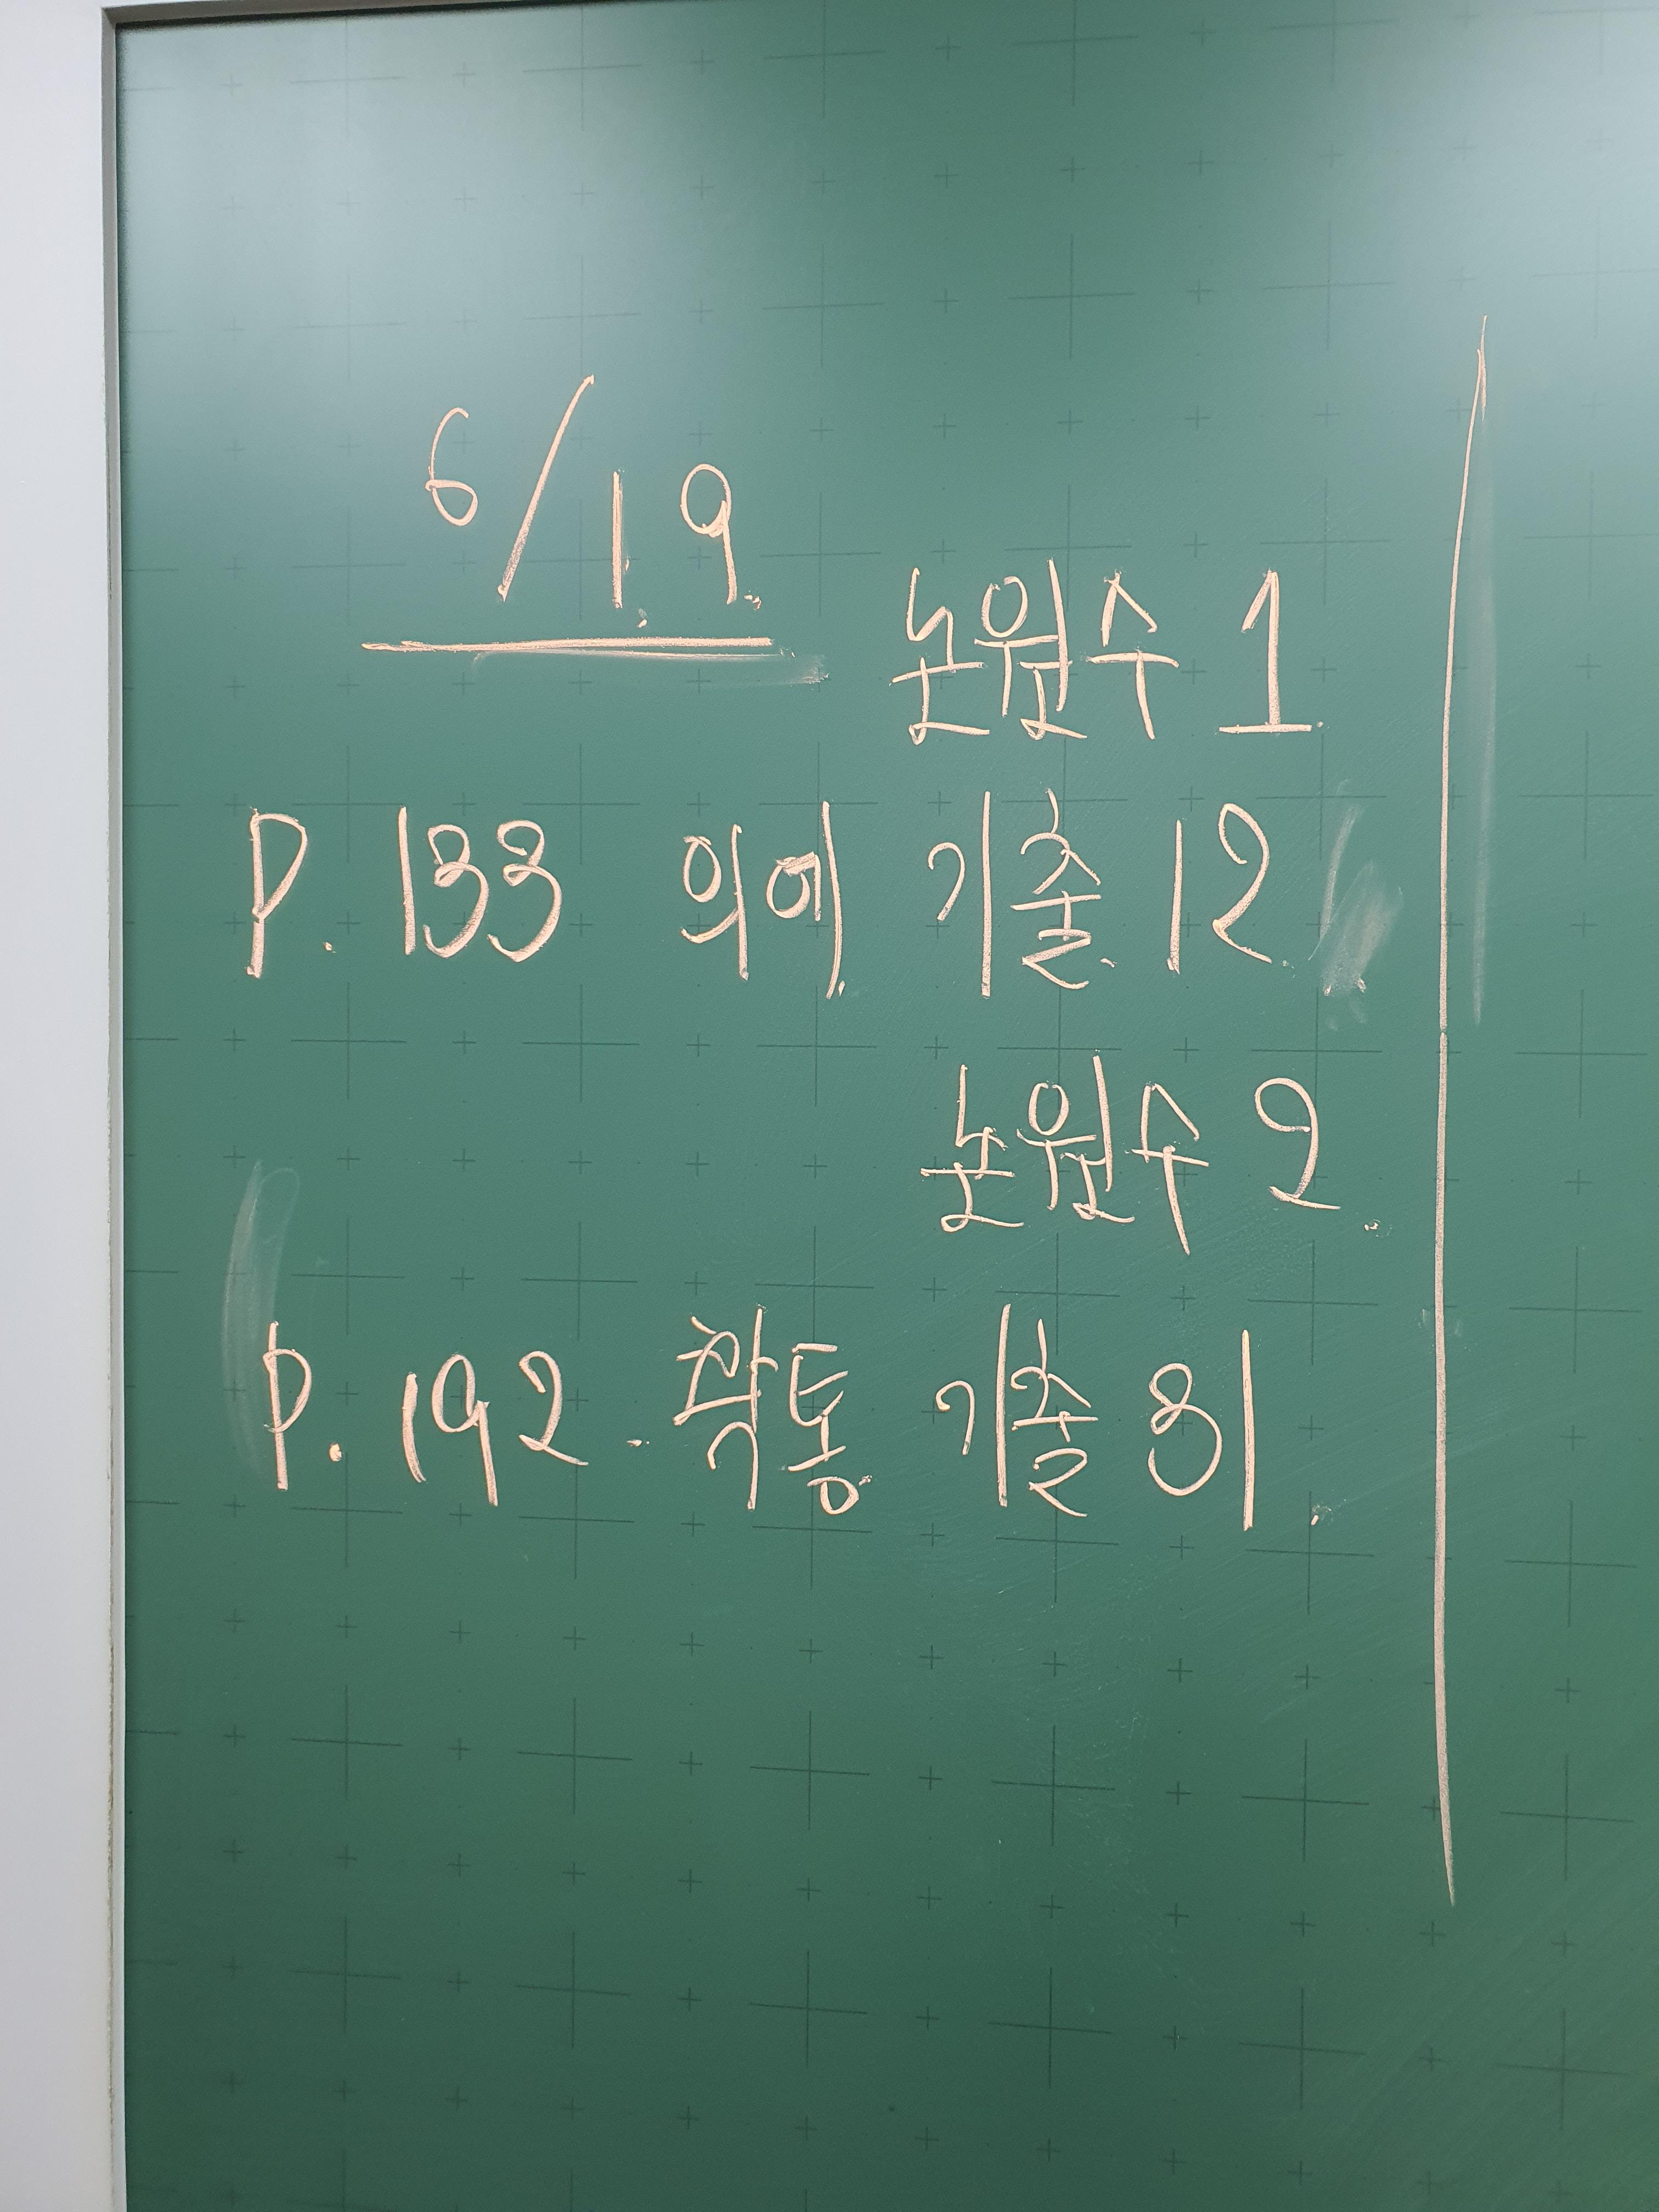 6/19.
논원수 1.
P. 133 의에 기출 12
논원수 2.
P. 192. 확통 기출 31.